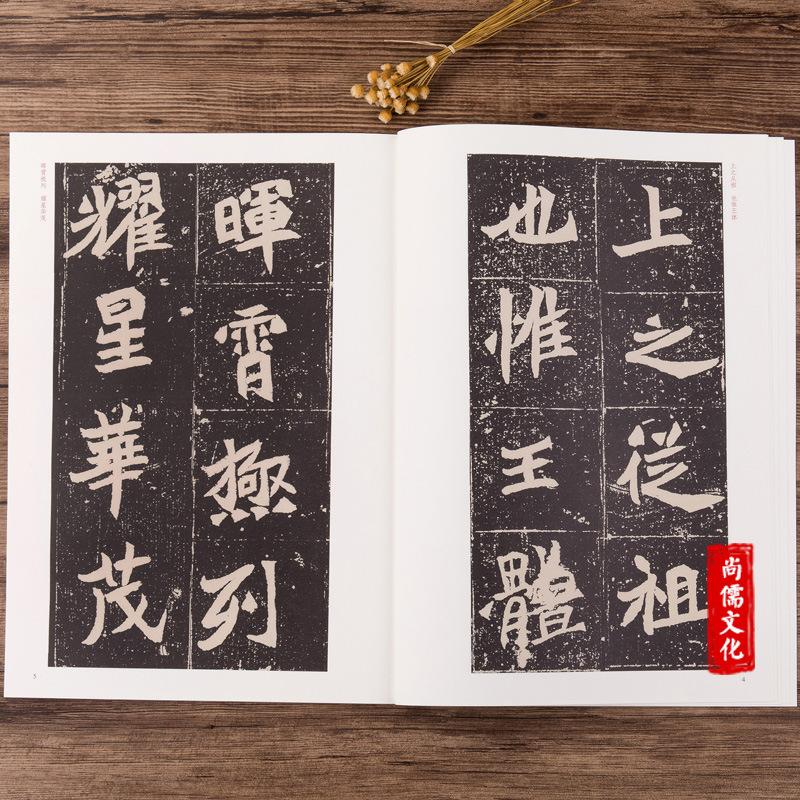 上之从祖 也惟王体
上之從祖
也惟王體
4
尚儒文化
晖霄极列 耀星华茂
暉霄極列
耀星華茂
5